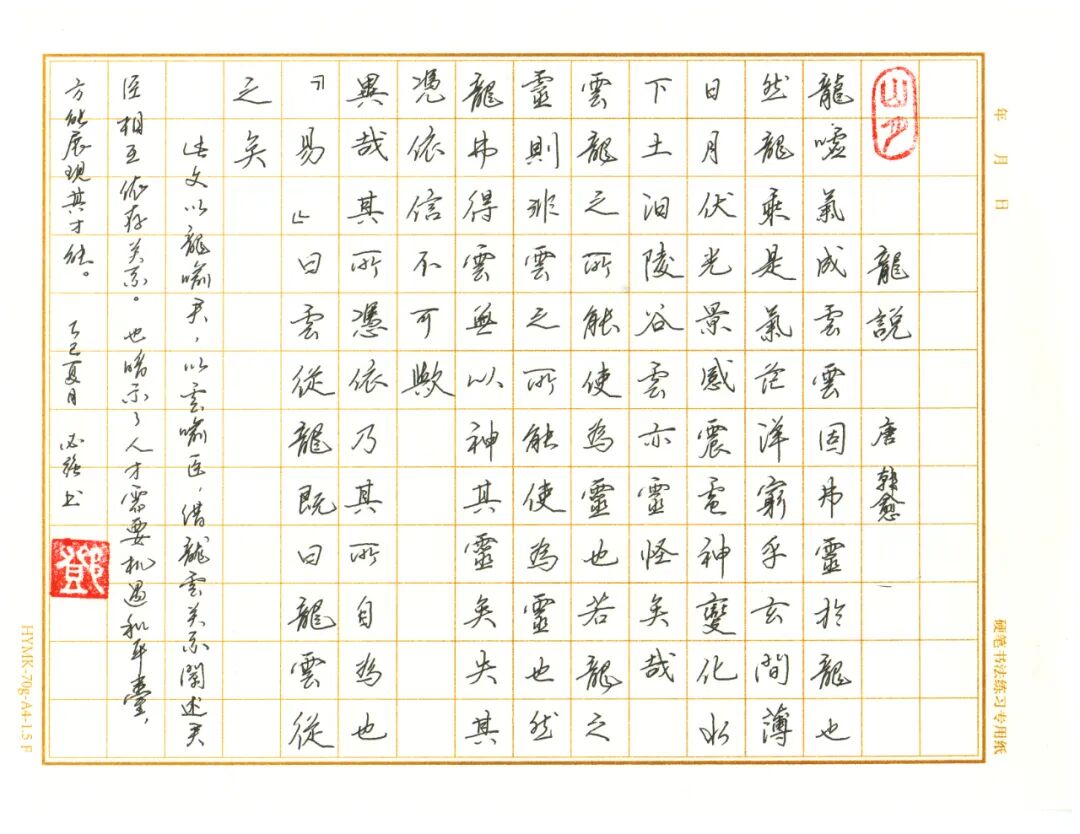 年 月 日
硬笔书法练习专用纸
山月
龍說 唐 韓愈
龍噓氣成雲雲固弗靈於龍也
然龍乘是氣茫洋窮乎玄間薄
日月伏光景感震電神變化水
下土汩陵谷雲亦靈怪矣哉
雲龍之所能使為靈也若龍之
靈則非雲之所能使為靈也然
龍弗得雲無以神其靈矣失其
凴依信不可歟
異哉其所憑依乃其所自為也
『易』曰雲從龍既曰龍雲從
之矣
此文以龍喻君，以雲喻臣，借龍雲关系闡述君
臣相互依存关系。也暗示了人才需要机遇和平臺，
方能展现其才能。 乙巳夏月 必强书
鄧
HYMK-70g-A4-1.5 F